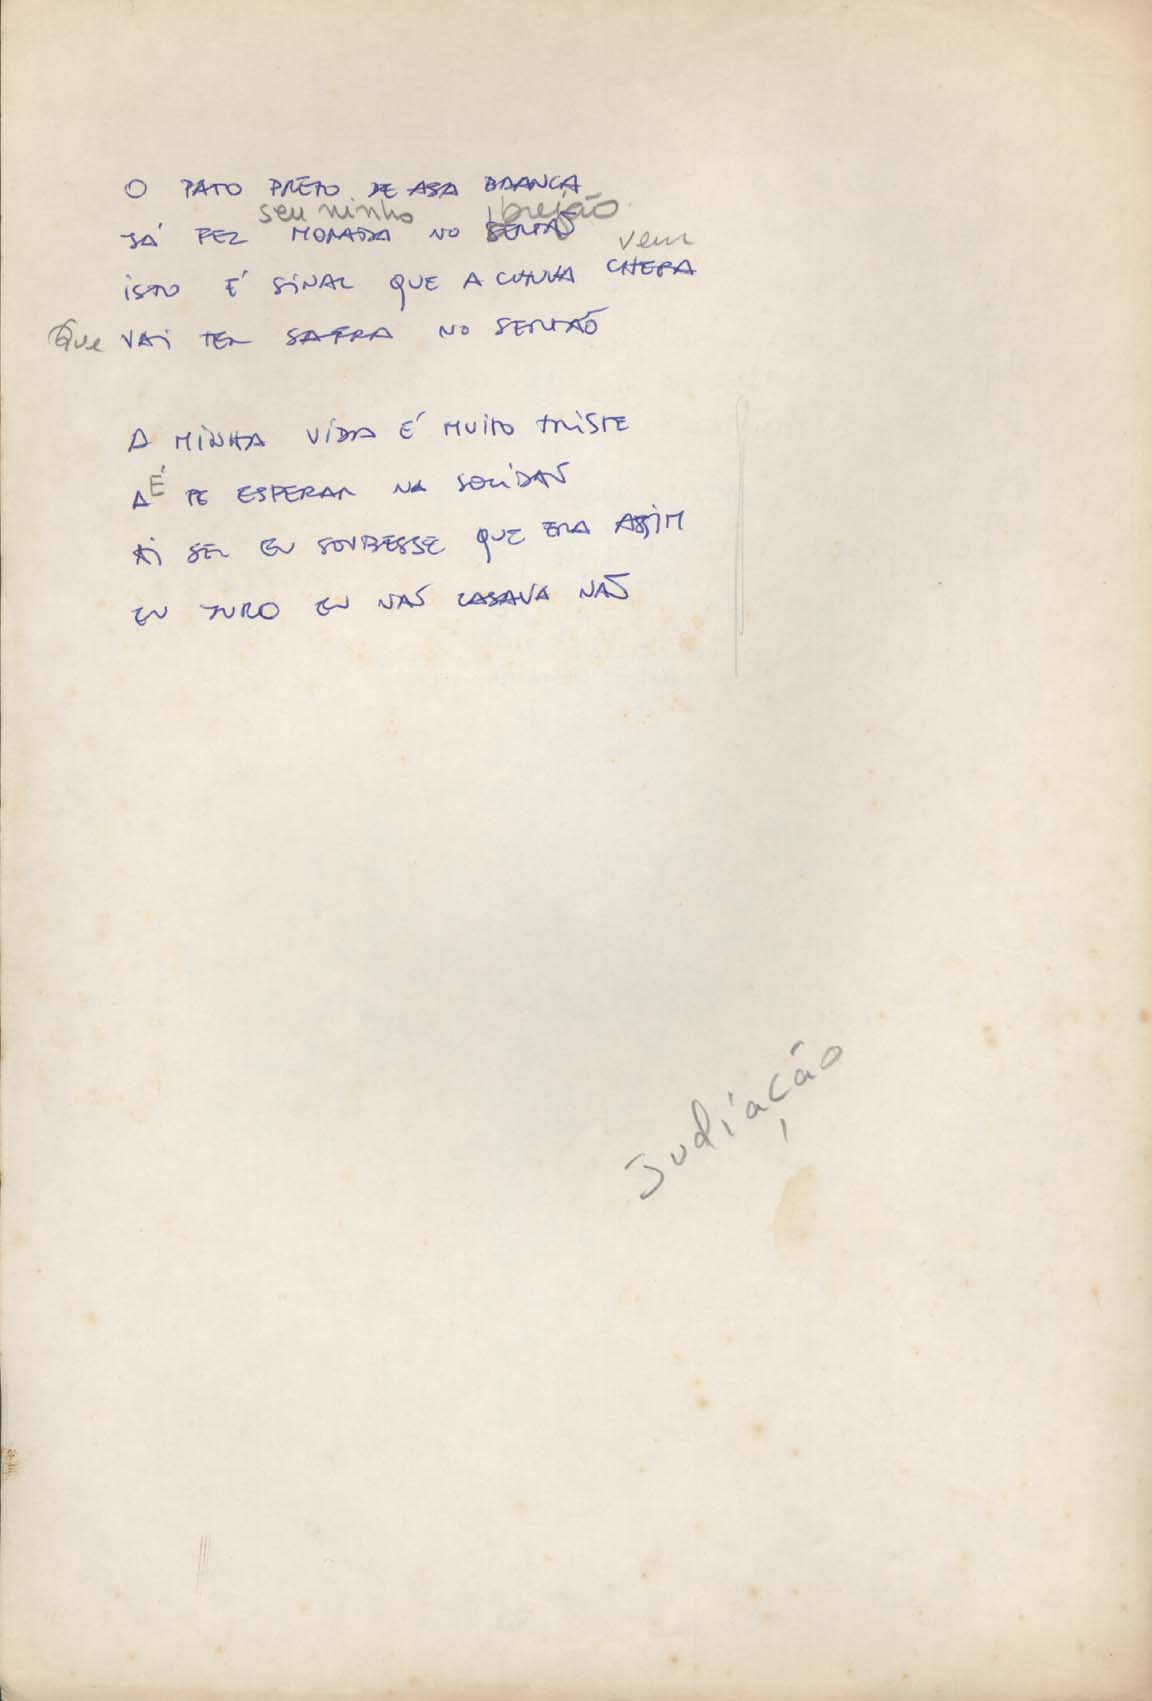 O PATO PRETO DE ASA BRANCA
seu ninho brejão
JÁ FEZ MORADA NO SERTÃO
vem
ISTO É SINAL QUE A CHUVA CHEGA
Que VAI TER SAFRA NO SERTÃO
A MINHA VIDA É MUITO TRISTE
É
A DE ESPERAR NA SOLIDÃO
AI SE EU SOUBESSE QUE ERA ASSIM
EU JURO EU NÃO CASAVA NÃO
Judiação